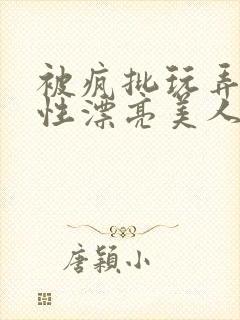 被疯批玩弄
性漂亮美人
唐颖小